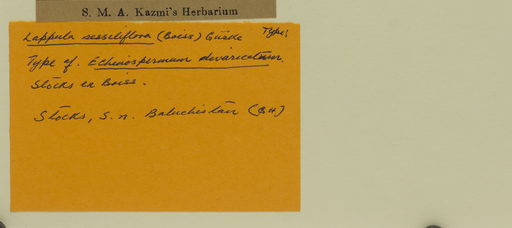 S. M. A. Kazmi's Herbarium
Lappula sessiliflora (Boiss) Gürke Type:
Type of. Echinospermum divaricatum.
Stocks ex Boiss.
Stocks, S. n. Baluchistan